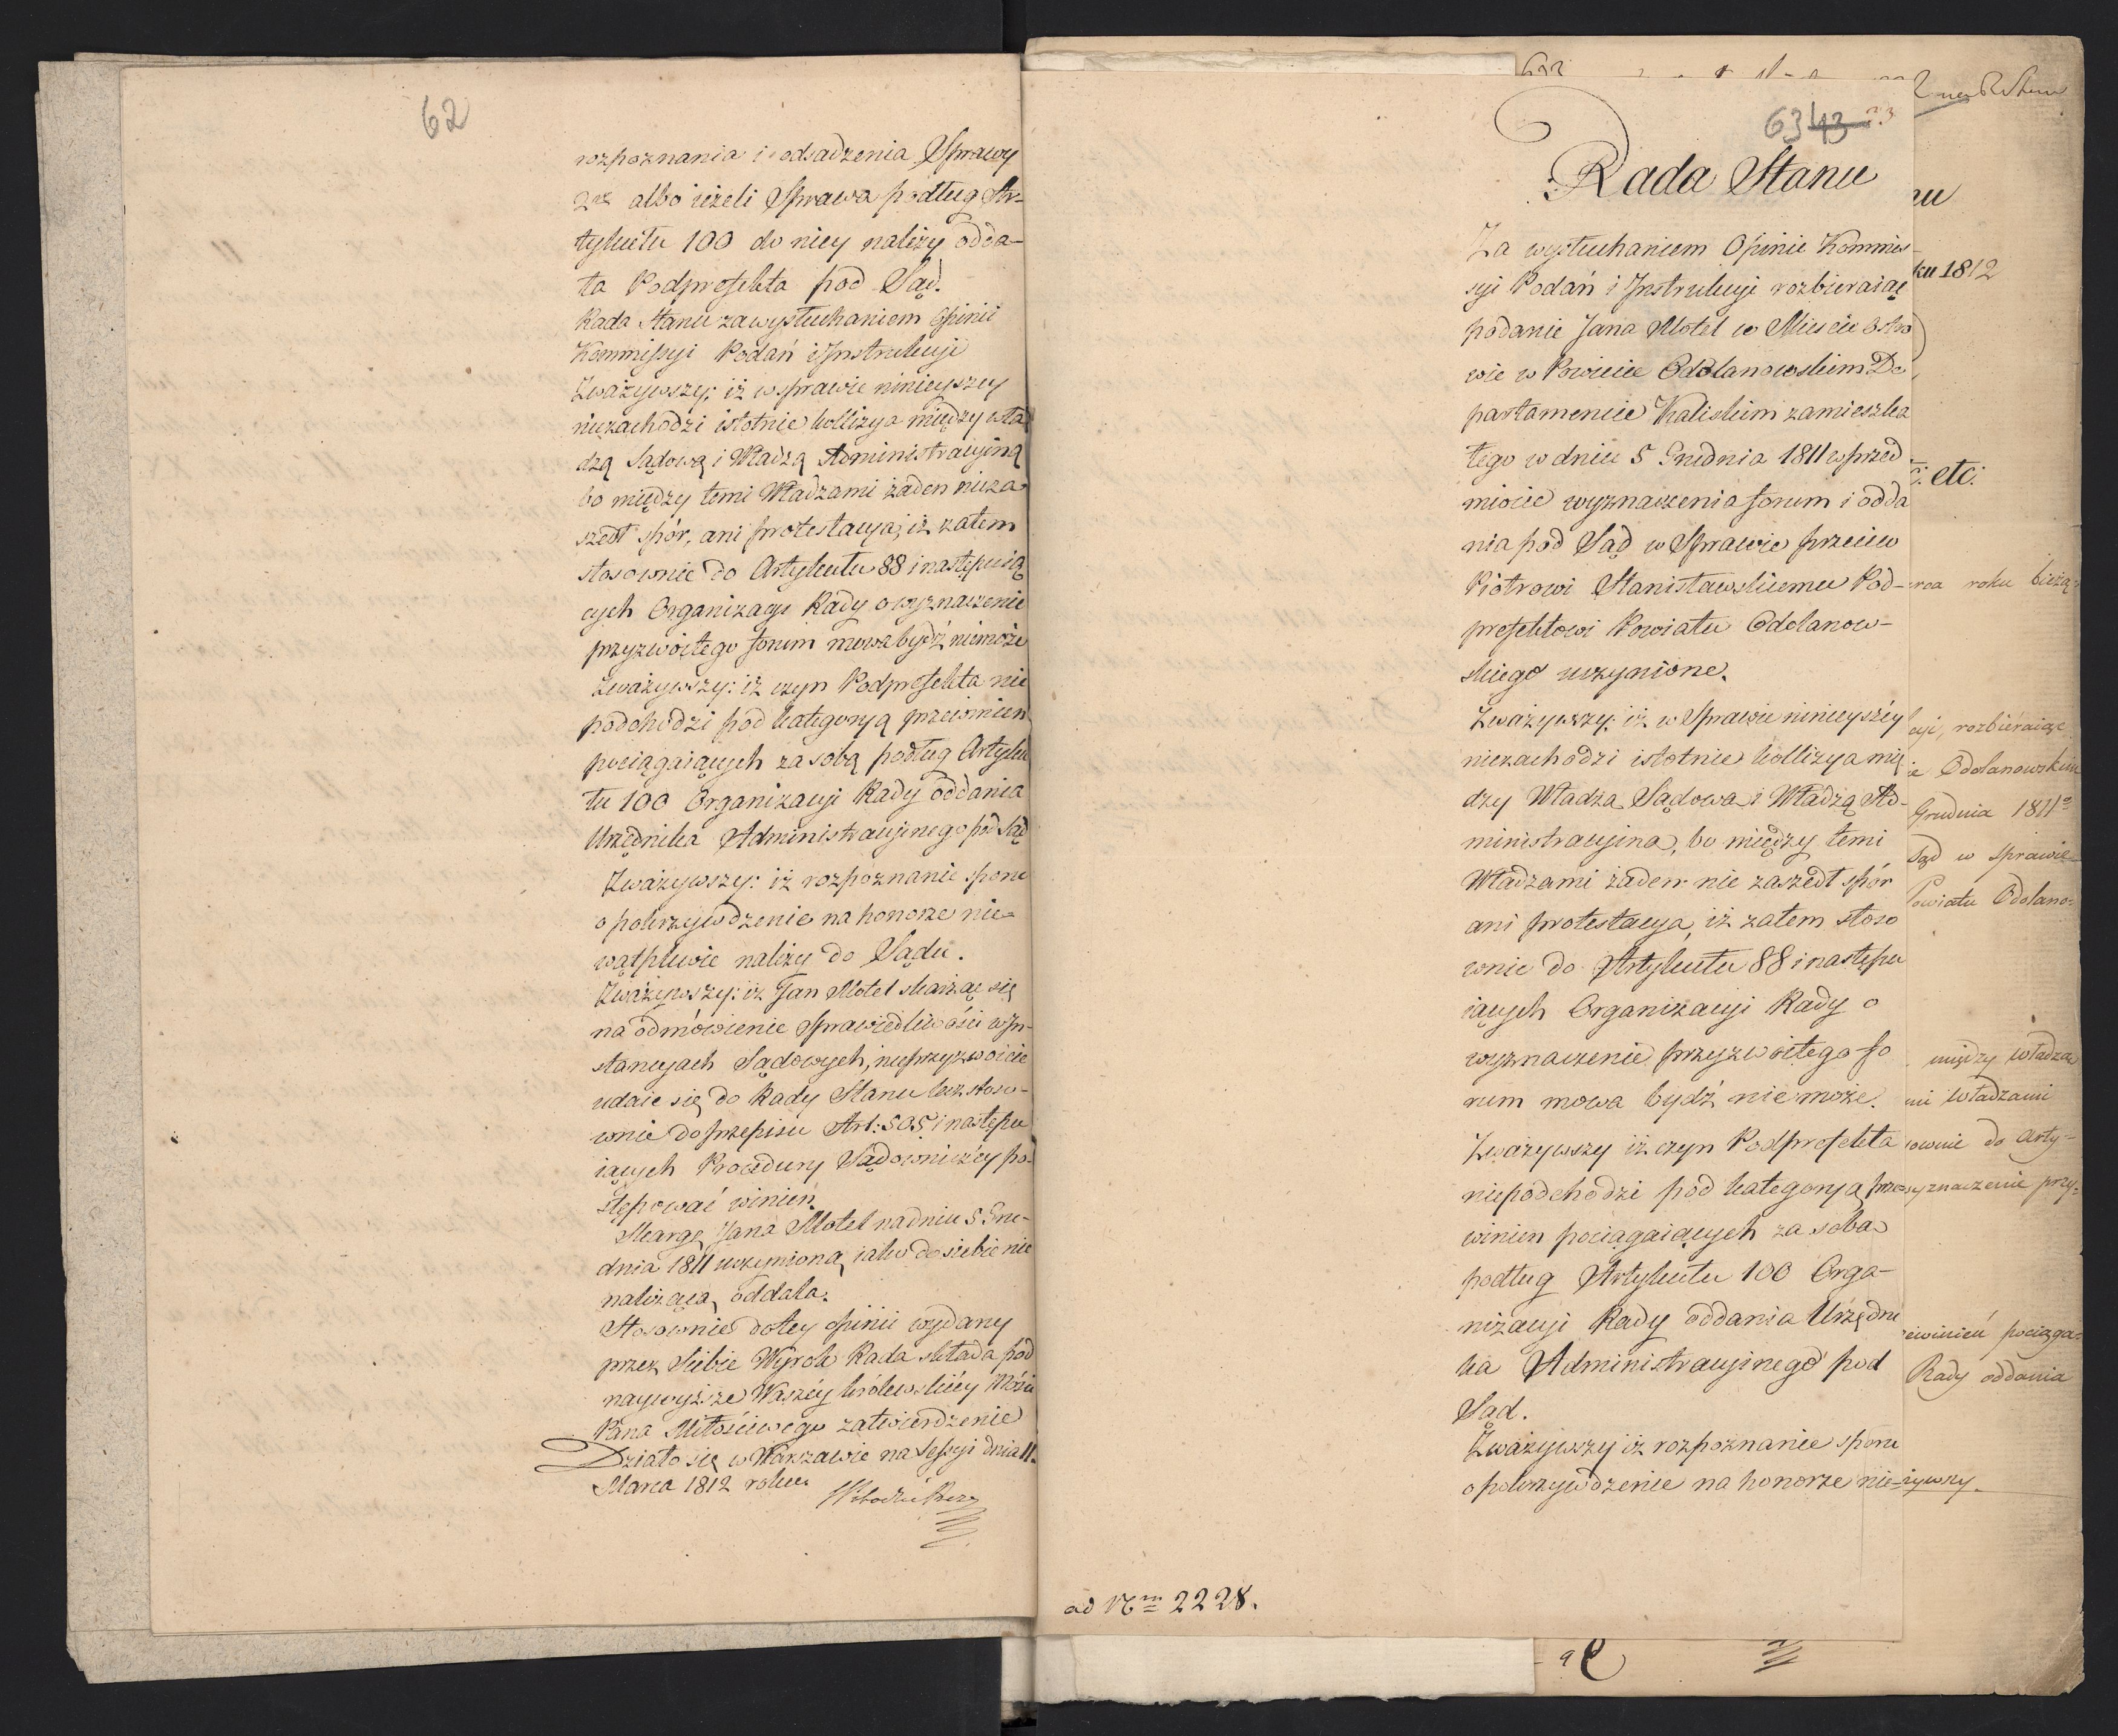 62
rozpoznania i odsadzenia Sprawy
2re albo ieżeli Sprawa podług Ar-
tykułu 100 do niey należy odda-
ła Podprefekta pod Sąd.
Rada Stanu zawysłuchaniem Opinii
Kommissyi Podań i Instrukcyi
Zważywszy: iż w sprawie ninieyszey
niezachodzi istotnie kollizya między wła
dzą Sądową i Władzą Administracyiną
bo między temi Władzami żaden nieza-
szedł spór, ani protestacya; iż zatem
stosownie do Artykułu 88 i następuią
cych Organizacyi Rady o wyznaczenie
przyzwoitego forum mowa bydź niemoże
Zważywszy: iż czyn Podprefekta nie
podchodzi pod kategoryą przewinień
pociągaiących za sobą podług Artyku
łu 100 Organizacyi Rady oddania
Urzędnika Administracyinego pod Sąd
Zważywszy: iż rozpoznanie sporu
o pokrzywdzenie na honorze nie-
wątpliwie należy do Sądu.
Zważywszy: iż Jan Motel skarżąc się
na odmówienie sprawiedliwości w In-
stancyach Sądowych, nieprzyzwoicie
udaie się do Rady Stanu lecz stoso-
wnie do przepisu Art: 505 i następu
iących Procedury Sądowniczéy po-
stępować winien.
Skargę Jana Motel na dniu 5 Gru-
dnia 1811 uczynioną, iako do siebie nie
należącą, oddala.
Stosownie do tey opinii wydany
przez Siebie Wyrok Rada składa pod
naywyższe Waszéy Królewskiéy Mości
Pana Miłościwego zatwierdzenie
Działo się w Warszawie na Sessyi dnia 11.
Marca 1812 roku.
63 43 23
Rada Stanu
Za wysłuchaniem Opinii Kommis-
syi Podań i Instrukcyi rozbieraiąc
podanie Jana Motel w Mieście Ostro
wie w Powiecie Odolanowskim De
partamencie Kaliskim zamieszka
łego w dniu 5 Grudnia 1811 w przed
miocie wyznaczenia forum i odda
nia pod Sąd w Sprawie przeciw
Piotrowi Stanisławskiemu Pod-
prefektowi Powiatu Odolanow-
skiego uczynione.
Zważywszy: iż w Sprawie ninieyszéy
niezachodzi istotnie kollizya mię
dzy Władzą Sądową i Władzą Ad-
ministracyiną, bo między temi
Władzami żaden nie zaszedł spór
ani protestacya, iż zatem stoso
wnie do Artykułu 88 i następu
iących Organizacyi Rady o
wyznaczenie przyzwoitego fo
rum mowa bydź nie może.
Zważywszy iż czyn Podprefekta
niepodchodzi pod kategoryą prze
winien pociągaiących za sobą
podług Artykułu 100 Orga-
nizacyi Rady oddania Urzędni
ka Administracyinego pod
Sąd.
Zważywszy iż rozpoznanie sporu
o pokrzywdzenie na honorze nie-
ad Nm 2228.
ku 1812
etc:
roku bieżą
cyi, rozbieraiąc
Odolanowskim
Grudnia 1811
Sąd w sprawie
Powiatu Odolano-
między władzą
władzami
do arty-
przy-
pociąga-
Rady oddania